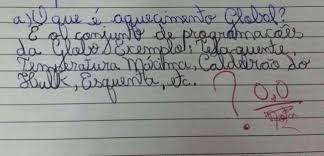 a) O que é aquecimento Global?
É o conjunto de programações
da Globo. Exemplo: Tela quente,
Temperatura Máxima, Caldeirão do
Hulk, Esquenta, etc.
? 0,0